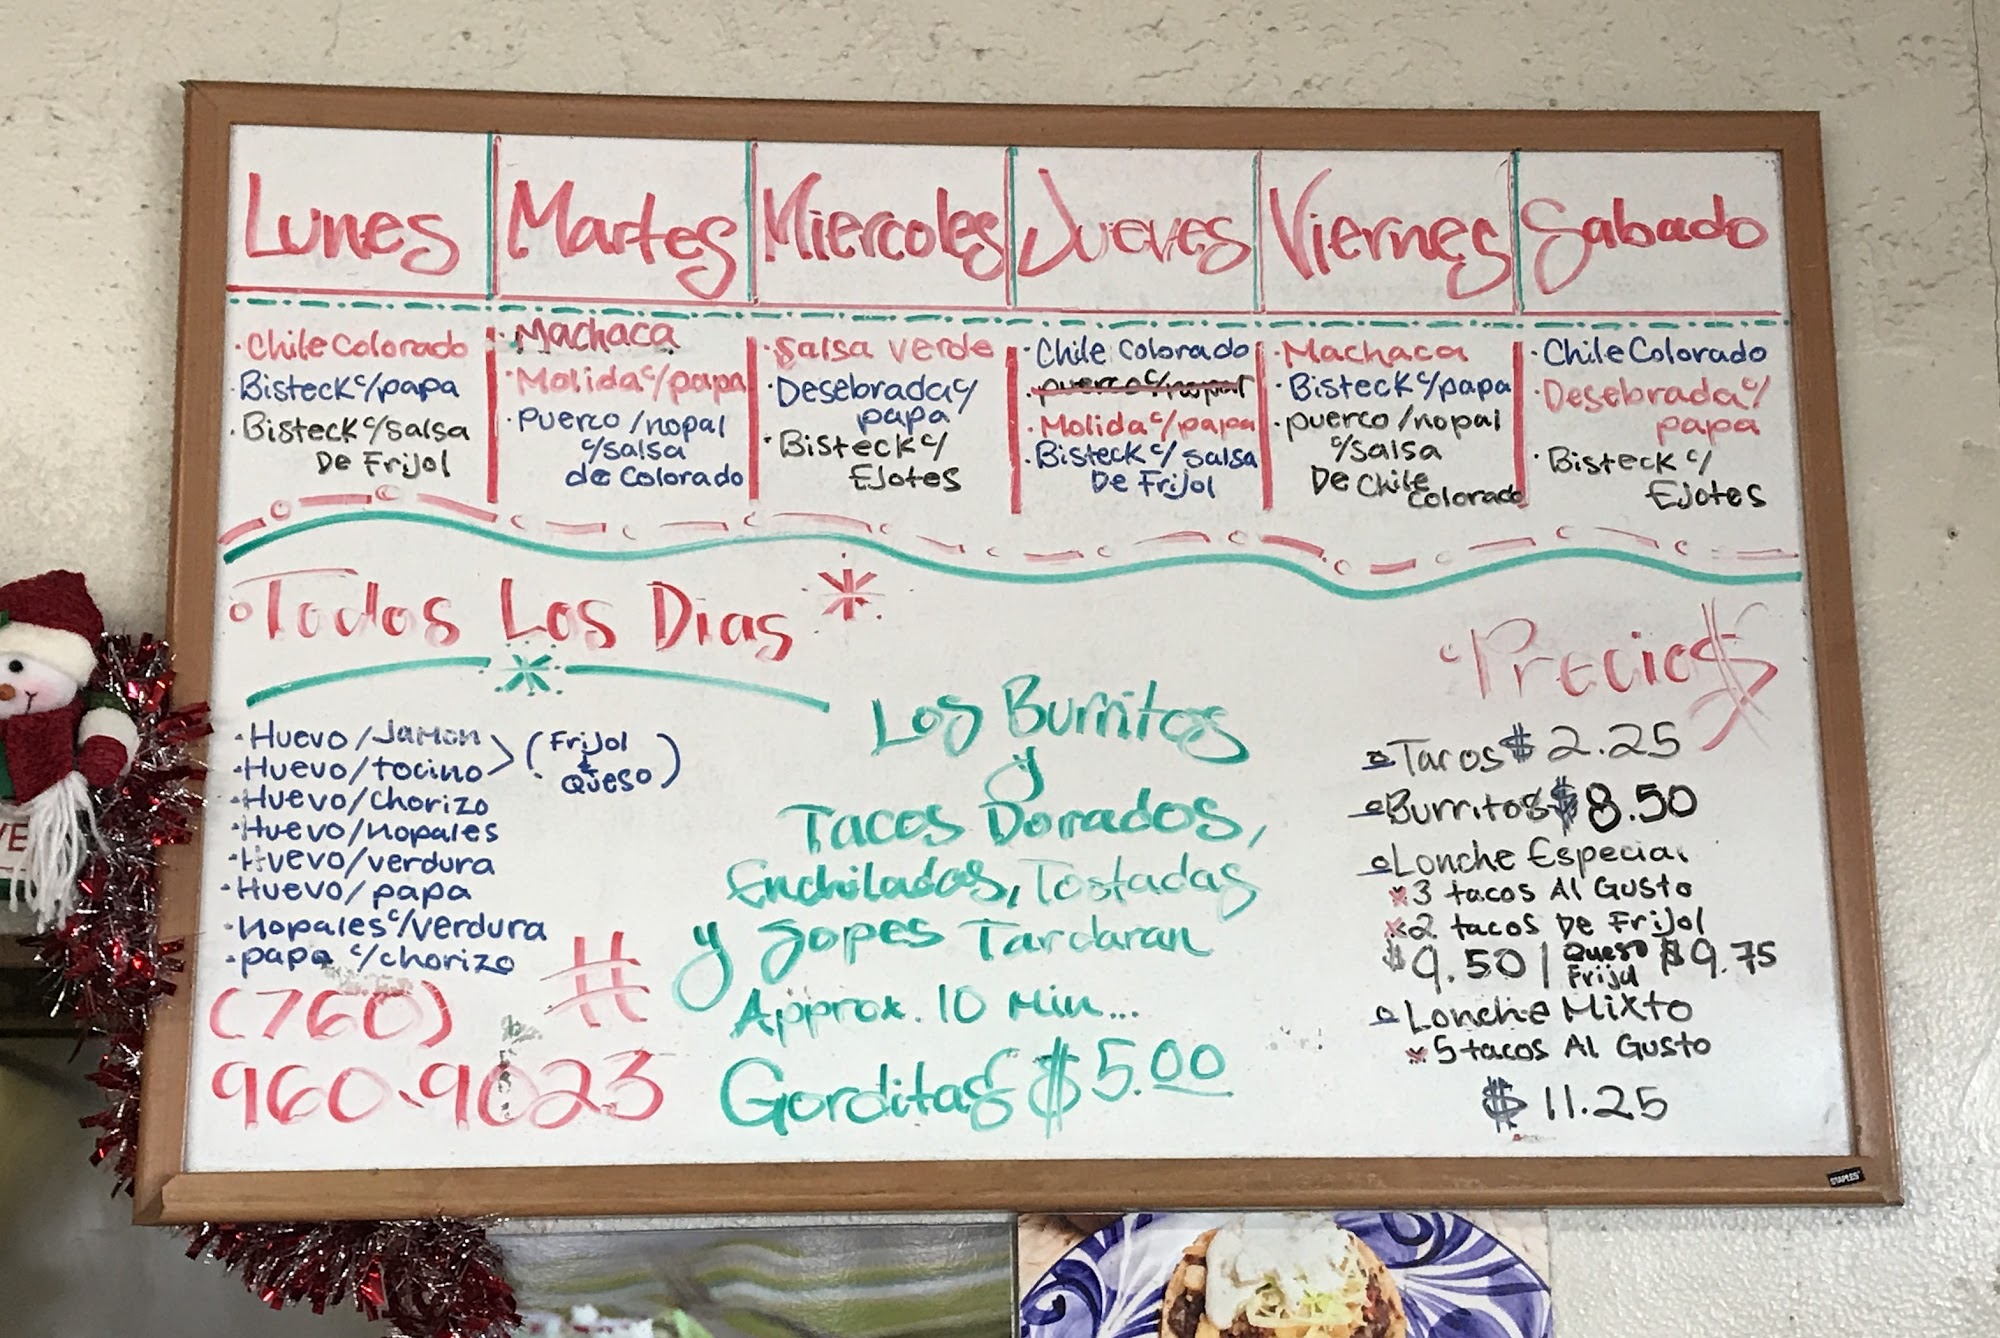 Lunes
Martes
Miercoles
Jueves
Viernes
Sabado
· Chile Colorado
· Bisteck c/papa
· Bisteck c/salsa
De Frijol
· Machaca
· Molida c/papa
· Puerco /nopal
c/salsa
de Colorado
· Salsa verde
· Desebrada c/
papa
· Bisteck c/
Ejotes
· Chile Colorado
· puerco c/nopal
· Molida c/papa
· Bisteck c/ salsa
De Frijol
· Machaca
· Bisteck c/papa
· puerco /nopal
c/salsa
De Chile
Colorado
· Chile Colorado
· Desebrada c/
papa
· Bisteck c/
Ejotes
Todos Los Dias *
· Huevo/Jamon
· Huevo/tocino
(Frijol
&
Queso)
· Huevo/chorizo
· Huevo/nopales
· Huevo/verdura
· Huevo/papa
· nopales c/verdura
· papa c/chorizo
#
(760)
960-9023
Los Burritos
y
Tacos Dorados,
Enchiladas, Tostadas
y Sopes Tardaran
Approx. 10 Min...
Gorditas $5.00
Precio$
Tacos $ 2.25
Burritos $ 8.50
Lonche Especial
x 3 tacos Al Gusto
x 2 tacos De Frijol
$9.50 | Queso Frijol $9.75
Lonche Mixto
x 5 tacos Al Gusto
$ 11.25
STAPLES
VE